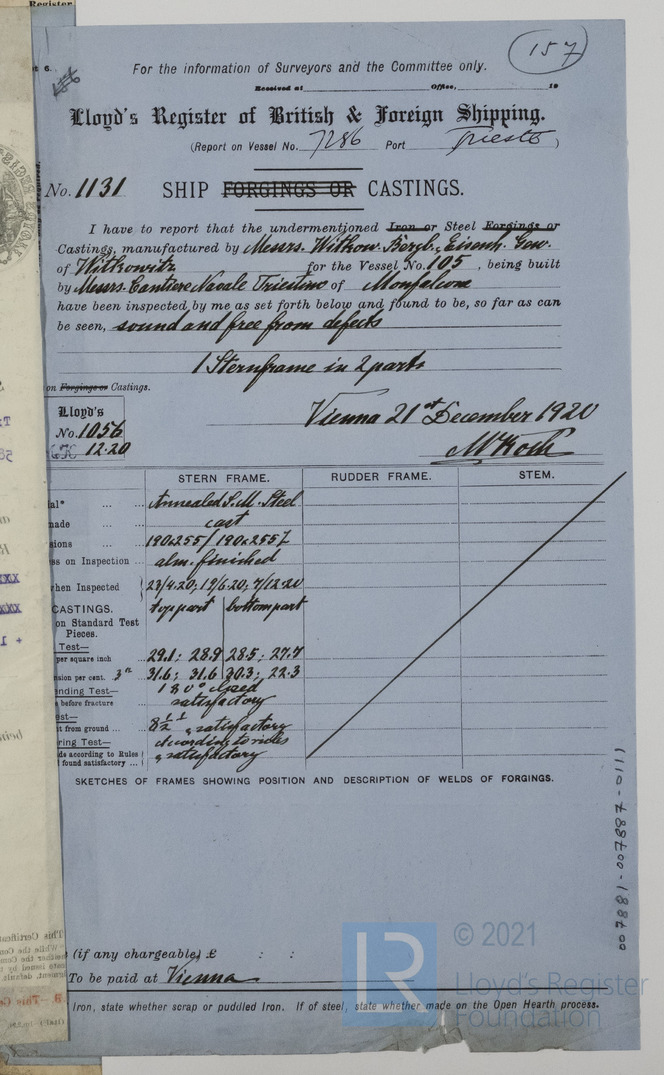 Register
157
For the information of Surveyors and the Committee only.
Received at Office, 19
Lloyd's Register of British & Foreign Shipping.
(Report on Vessel No. 7286 Port Trieste)
No. 1131 SHIP FORGINGS OR CASTINGS.
I have to report that the undermentioned Iron or Steel Forgings or
Castings, manufactured by Messrs. Witkow. Bergb. Eisenh. Gew.
of Witkowitz for the Vessel No. 105, being built
by Messrs. Cantiere Navale Triestino of Monfalcone
have been inspected by me as set forth below and found to be, so far as can
be seen, sound and free from defects
1 Sternframe in 2 parts
on Forgings or Castings.
Lloyd's
No. 1056
12.20
Vienna 21st December 1920
STERN FRAME. RUDDER FRAME. STEM.
Annealed S.M. Steel
made cast
190x255 / 190x255
on Inspection alm. finished
when Inspected 23/4.20; 19/6.20; 7/12.20
CASTINGS. top part bottom part
on Standard Test
Pieces.
Test—
per square inch 29.1; 28.9 28.5; 27.7
per cent. 3" 31.6; 31.6 30.3; 22.3
Test— 180° closed
before fracture satisfactory
from ground 8½ satisfactory
Test— according to rules
according to Rules
found satisfactory satisfactory
SKETCHES OF FRAMES SHOWING POSITION AND DESCRIPTION OF WELDS OF FORGINGS.
007881-007887-0111
(if any chargeable) £ : :
To be paid at Vienna
Iron, state whether scrap or puddled Iron. If of steel, state whether made on the Open Hearth process.
LR
© 2021
Lloyd's Register
Foundation